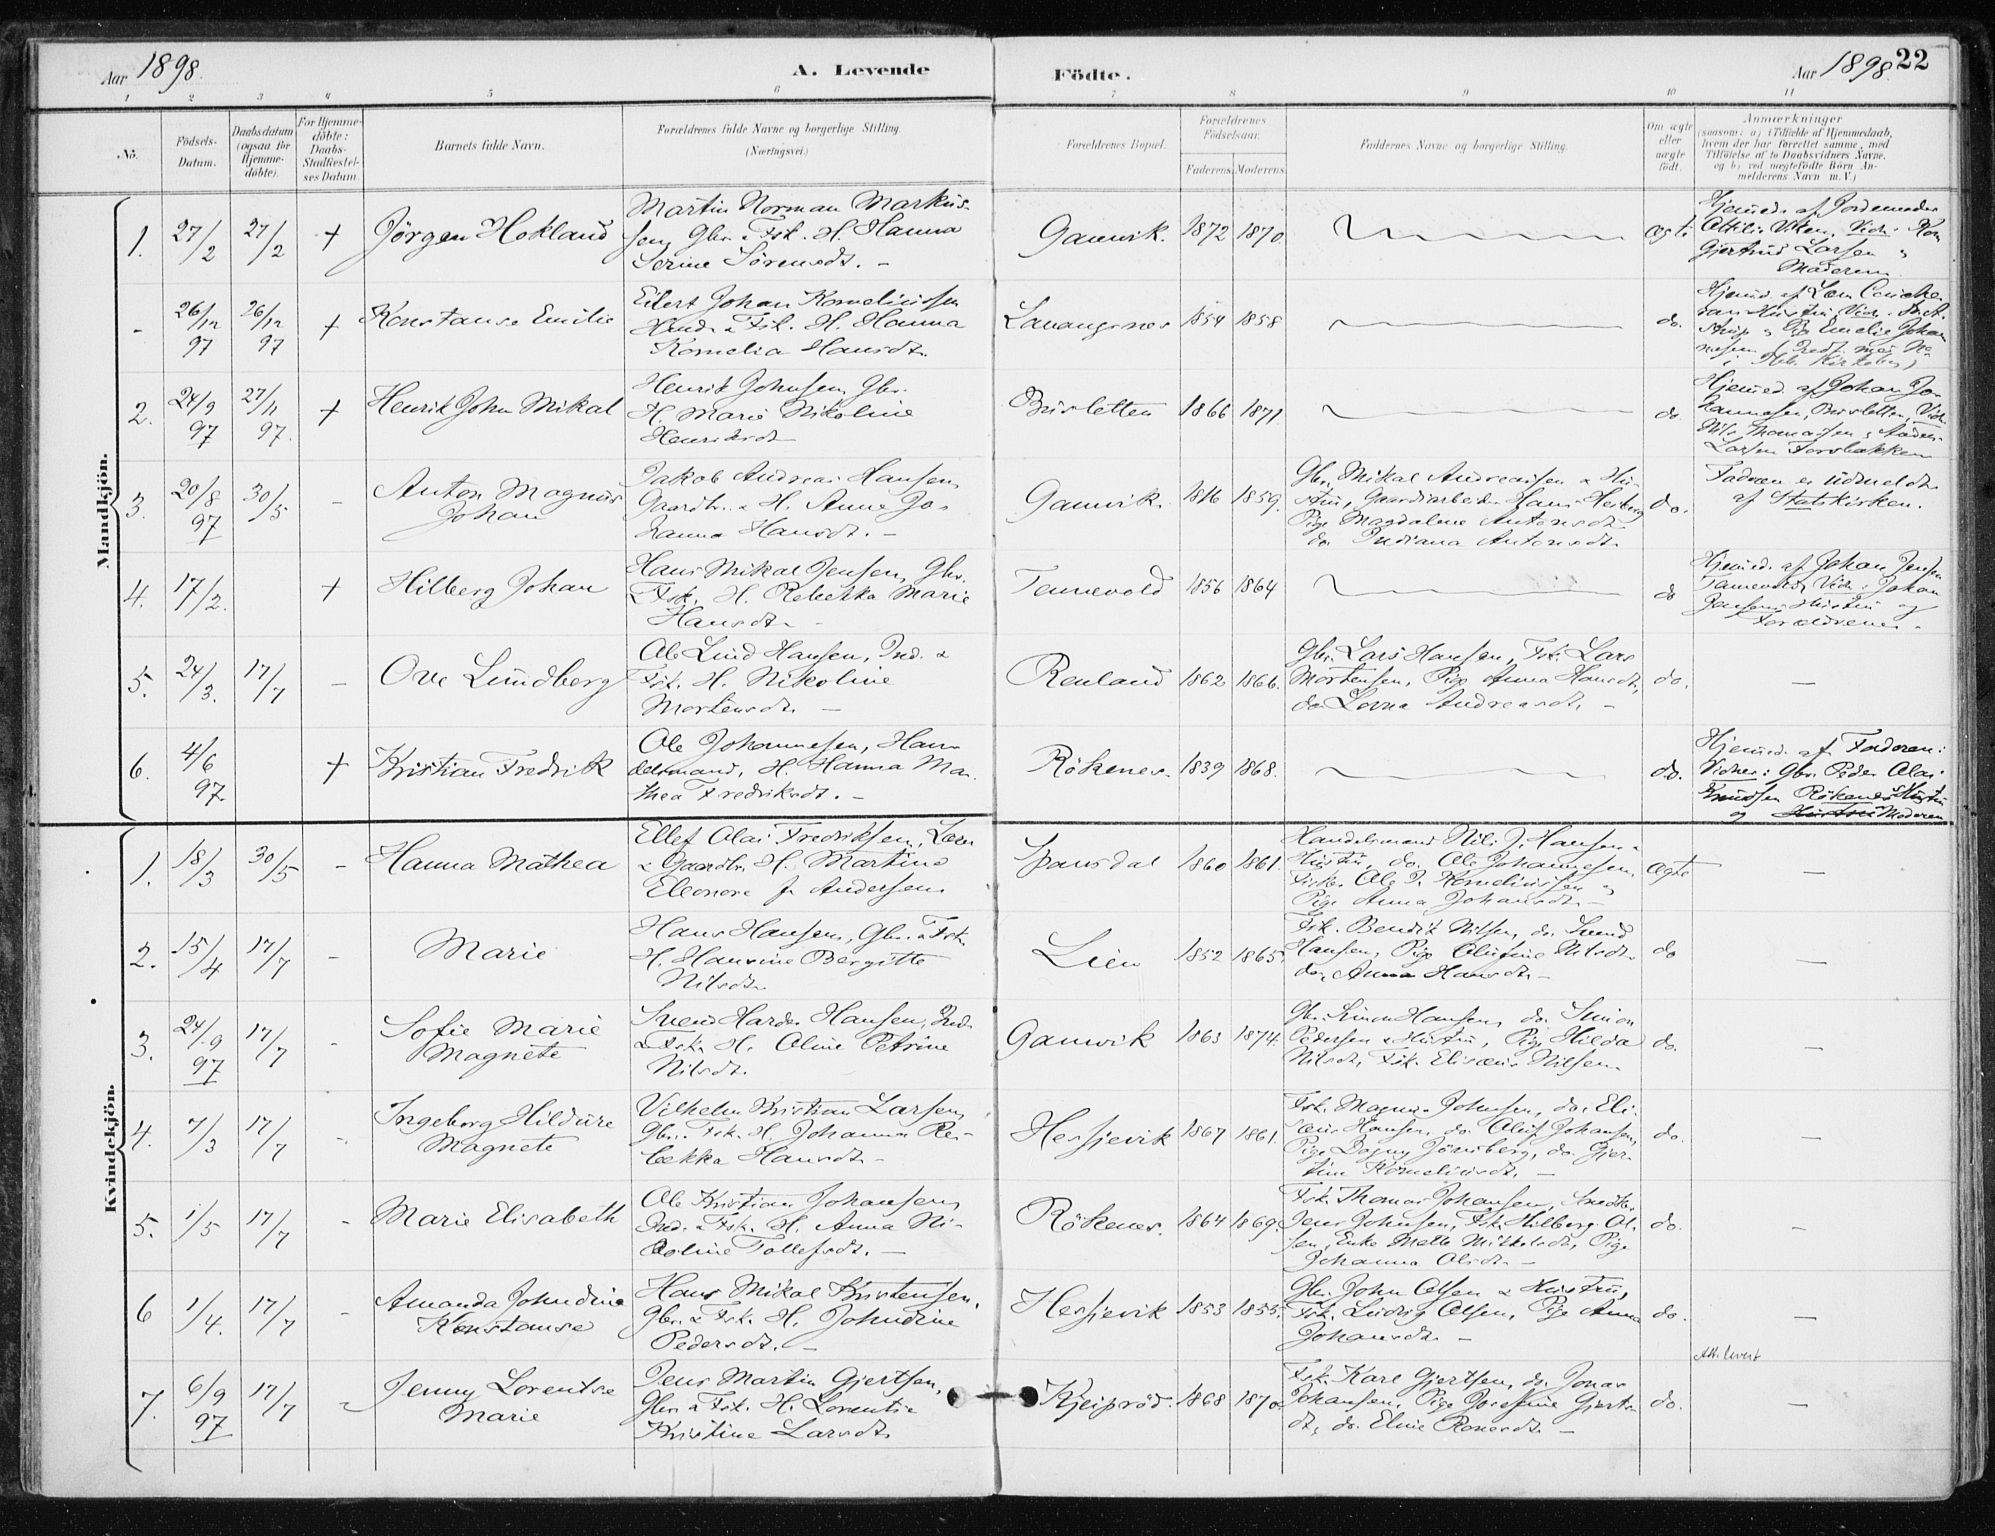 Aar 1898.
A. Levende
Födte.
Aar 1898. 22
1 2 3 4 5 6 7 8 9 10 11
No.
Födsels-
Datum.
Daabsdatum
(ogsaa for
Hjemme-
döbte).
For Hjemme-
döbte:
Daabs-
Stadfæstel-
ses Datum.
Barnets fulde Navn.
Forældrenes fulde Navne og borgerlige Stilling.
(Næringsvei.)
Forældrenes Bopæl.
Forældrenes
Födselsaar.
Faderens. Moderens.
Faddernes Navne og borgerlige Stilling.
Om ægte
eller
uægte
födt.
Anmærkninger
(saasom: a) i Tilfælde af Hjemmedaab,
hvem der har forrettet samme, med
Tilföielse af to Daabsvidners Navne,
og b) ved uægtefödte Börn An-
melderens Navn m. V.)
Mandkjön.
1. 27/2 27/2 + Jörgen Hokland
Martin Norman Markus-
sen, Gbr. & Fsk. H. Hanna
Serine Sörensdt. -
Gamvik. 1872 1870. ægte
Hjemmed. af
Vidn.
Gjertrud Larsen
Moderen
- 26/12 97 26/12 97 + Konstanse Emilie
Eilert Johan Korneliussen
& Fsk. H. Hanna
Kornelia Hansdt.
Lavangsnes 1854 1858 do.
Emelie Johan
2. 24/9 97 27/11 97. + Henrik John Mikal
Henrik Johnsen, Gbr.
H. Marie Nikoline
Henriksdt.
Brisletten 1866 1871 do
Hjemmed. af Johan Jo-
hannesen, Brisletten, Vidn.
Nils
Larsen
3. 20/8 97 30/5 - Anton Magnus
Johan
Jakob Andreas Hansen,
Gaardbr. & H. Anne Jo-
hanna Hansdt. -
Gamvik. 1816 1859.
Gbr. Mikal Andreassen & Hu-
stru, Gaardsarbeider Hans
Pige Magdalene Antonsdt.
do. Indiana Antonsdt.
do.
Faderen er udmeldt
af Statskirken.
4. 17/2. + Hilberg Johan
Hans Mikal Jensen, Gbr.
& Fsk. H. Rebekka Marie
Hansdt. -
Tennevold 1856 1864 do
Hjemmed. af Johan Jensen
Tennevold, Vidn.: Johan
Jensens Hustru og
Forældrene.
5. 24/3. 17/7 - Ove Lundberg
Ole Lind Hansen, Ind. &
Fsk. H. Nikoline
Mortensdt. -
Renland 1862 1866.
Gbr. Lars Hansen, Fsk. Lars
Mortensen, Pige Anna Hansdt.,
do. Lovna Andreasdt. -
do. -
6. 4/6 97. + Kristian Fredrik
Ole Johannesen, Han-
delsmand, H. Hanna Ma-
thea Fredriksdt. -
Rökenes. 1839 1868. do.
Hjemmed. af Faderen:
Vidner: Gbr. Peder Olai
Knudsen Rökenes Hustru
og Hustru Moderen
Kvindekjön.
1. 18/3 30/5 - Hanna Mathea
Ellef Olai Fredriksen, Læn
& Gaardbr. H. Martine
Eleonore f. Andersen
Spansdal 1860 1861.
Handelsmand Nils J. Hansen &
Hustru, do. Ole Johannesen,
Fisker Ole J. Korneliussen
Pige Anna Johansdt. -
ægte -
2. 15/4 17/7 - Marie
Hans Hansen, Gbr. & Fsk.
H. Hansine Bergitte
Nilsdt.
Lien 1852 1865.
Fsk. Bendik Nilsen, do. Svend
Hansen, Pige Olufine Nilsdt.
do. Anna Hansdt. -
do -
3. 24/9 97 17/7 - Sofie Marie
Magnete
Svend Harder Hansen, Ind.
& Fsk. H. Oline Petrine
Nilsdt.
Gamvik 1863 1874.
Gbr. Simon Hansen, do. Simon
Pedersen & Hustru, Pige Hilda
Nilsdt., Fsk. Elisæus Nilsen.
do. -
4. 7/3 17/7 - Ingeborg Hildure
Magnete
Vilhelm Kristian Larsen,
Gbr. & Fsk. H. Johanna Re-
bekka Hansdt. -
Hesjevik 1867 1861.
Fsk. Magnus Johnsen, do. Eli-
sæus Hansen, do. Oluf Johansen,
Pige Dagny Jönsberg, do. Gjer-
tine Korneliusdt. -
do. -
5. 1/5 17/7 - Marie Elisabeth
Ole Kristian Johansen,
Ind. & Fsk. H. Anna Ni-
coline Tollefsdt. -
Rökenes. 1864 1869.
Fsk. Thomas Johansen, Snedker
Jens Johnsen, Fsk. Hilberg Ol-
sen, Enke Mette Mikkelsdt., Pige
Johanna Olsdt. -
do. -
6 1/4. 17/7 - Amanda Johndine
Konstanse
Hans Mikal Kristensen,
Gbr. & Fsk. H. Johndine
Pedersdt. -
Hesjevik 1853 1855.
Gbr. John Olsen & Hustru,
Fsk. Ludvig Olsen, Pige Anna
Johansdt. -
do. -
Att. levert
7. 6/9 97 17/7 - Jenny Lorentse
Marie
Jens Martin Gjertsen,
Gbr. & Fsk. H. Lorentse
Kristine Larsdt.
Kjeiprod. 1868 1870
Fsk. Karl Gjertsen, do. Jonas
Johansen, Pige Josefine Gjerts-
dt., do. Eline Ronesdt. -
do. -